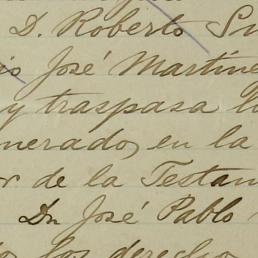 D. Roberto
José Martíne
y traspasa
nerado, en la
r de la Testam
Dn José Pablo
los derecho